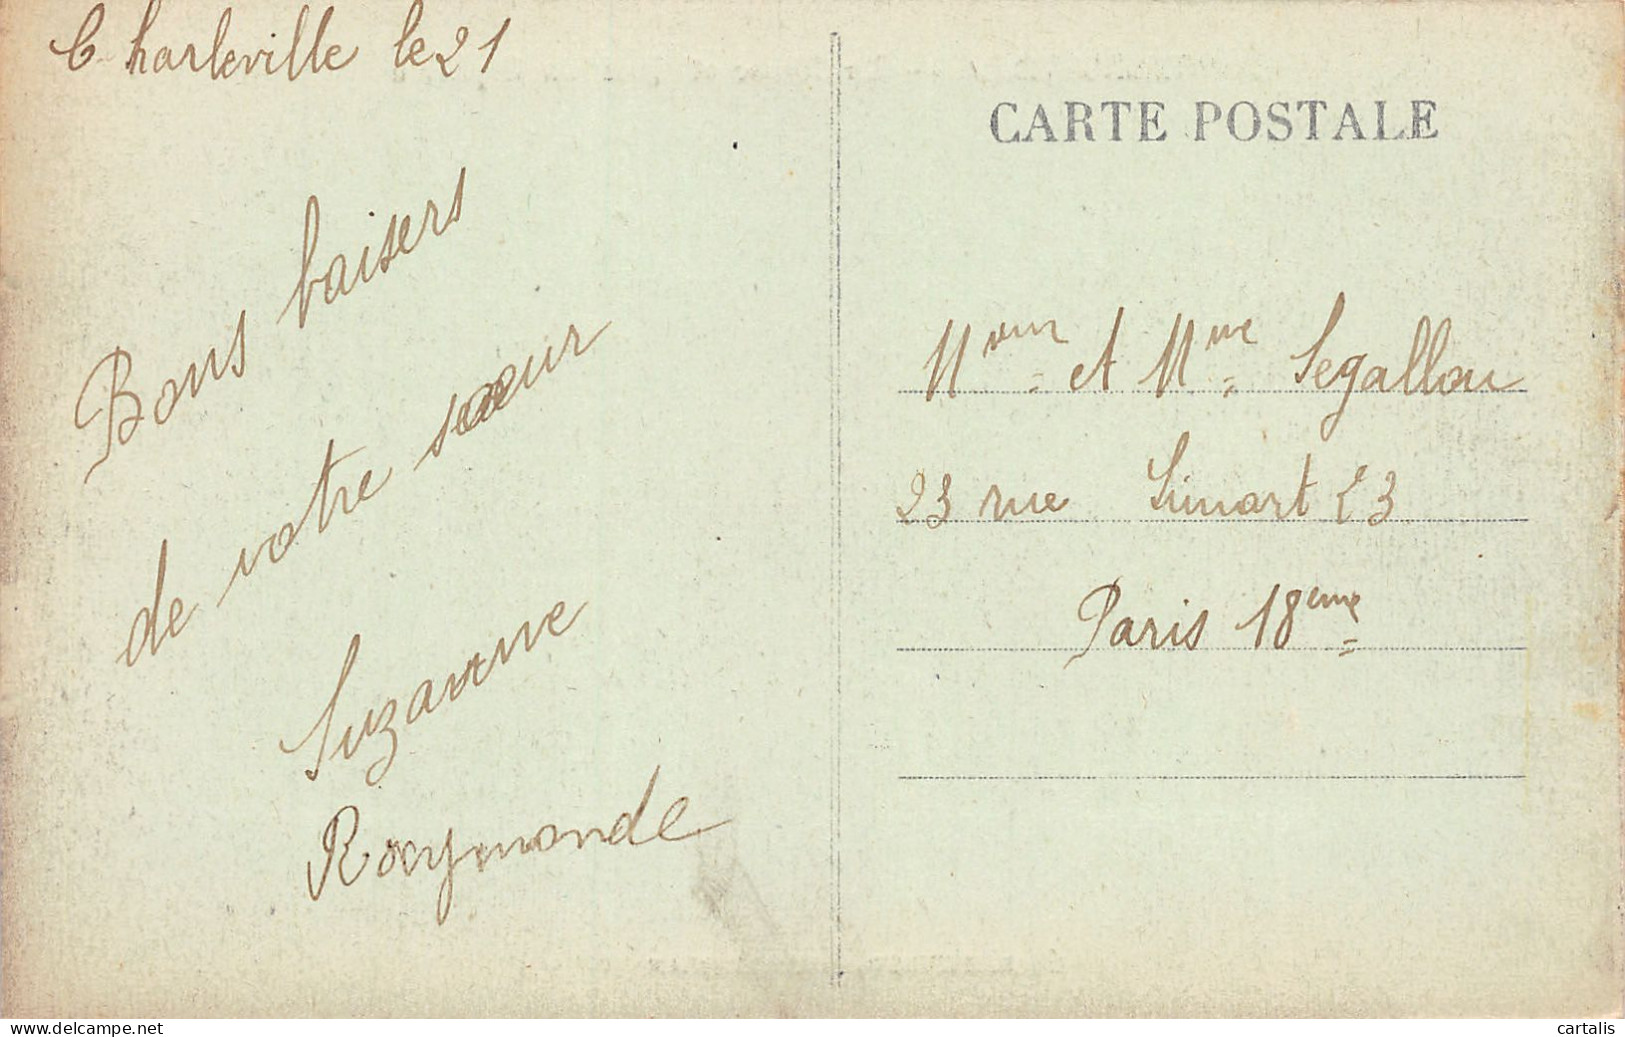 Charleville le 21
Bons baisers
de votre sœur
Suzanne
Raymonde
CARTE POSTALE
et Mme Segallou
23 rue Simart 23
Paris 18eme
www.delcampe.net
cartalis